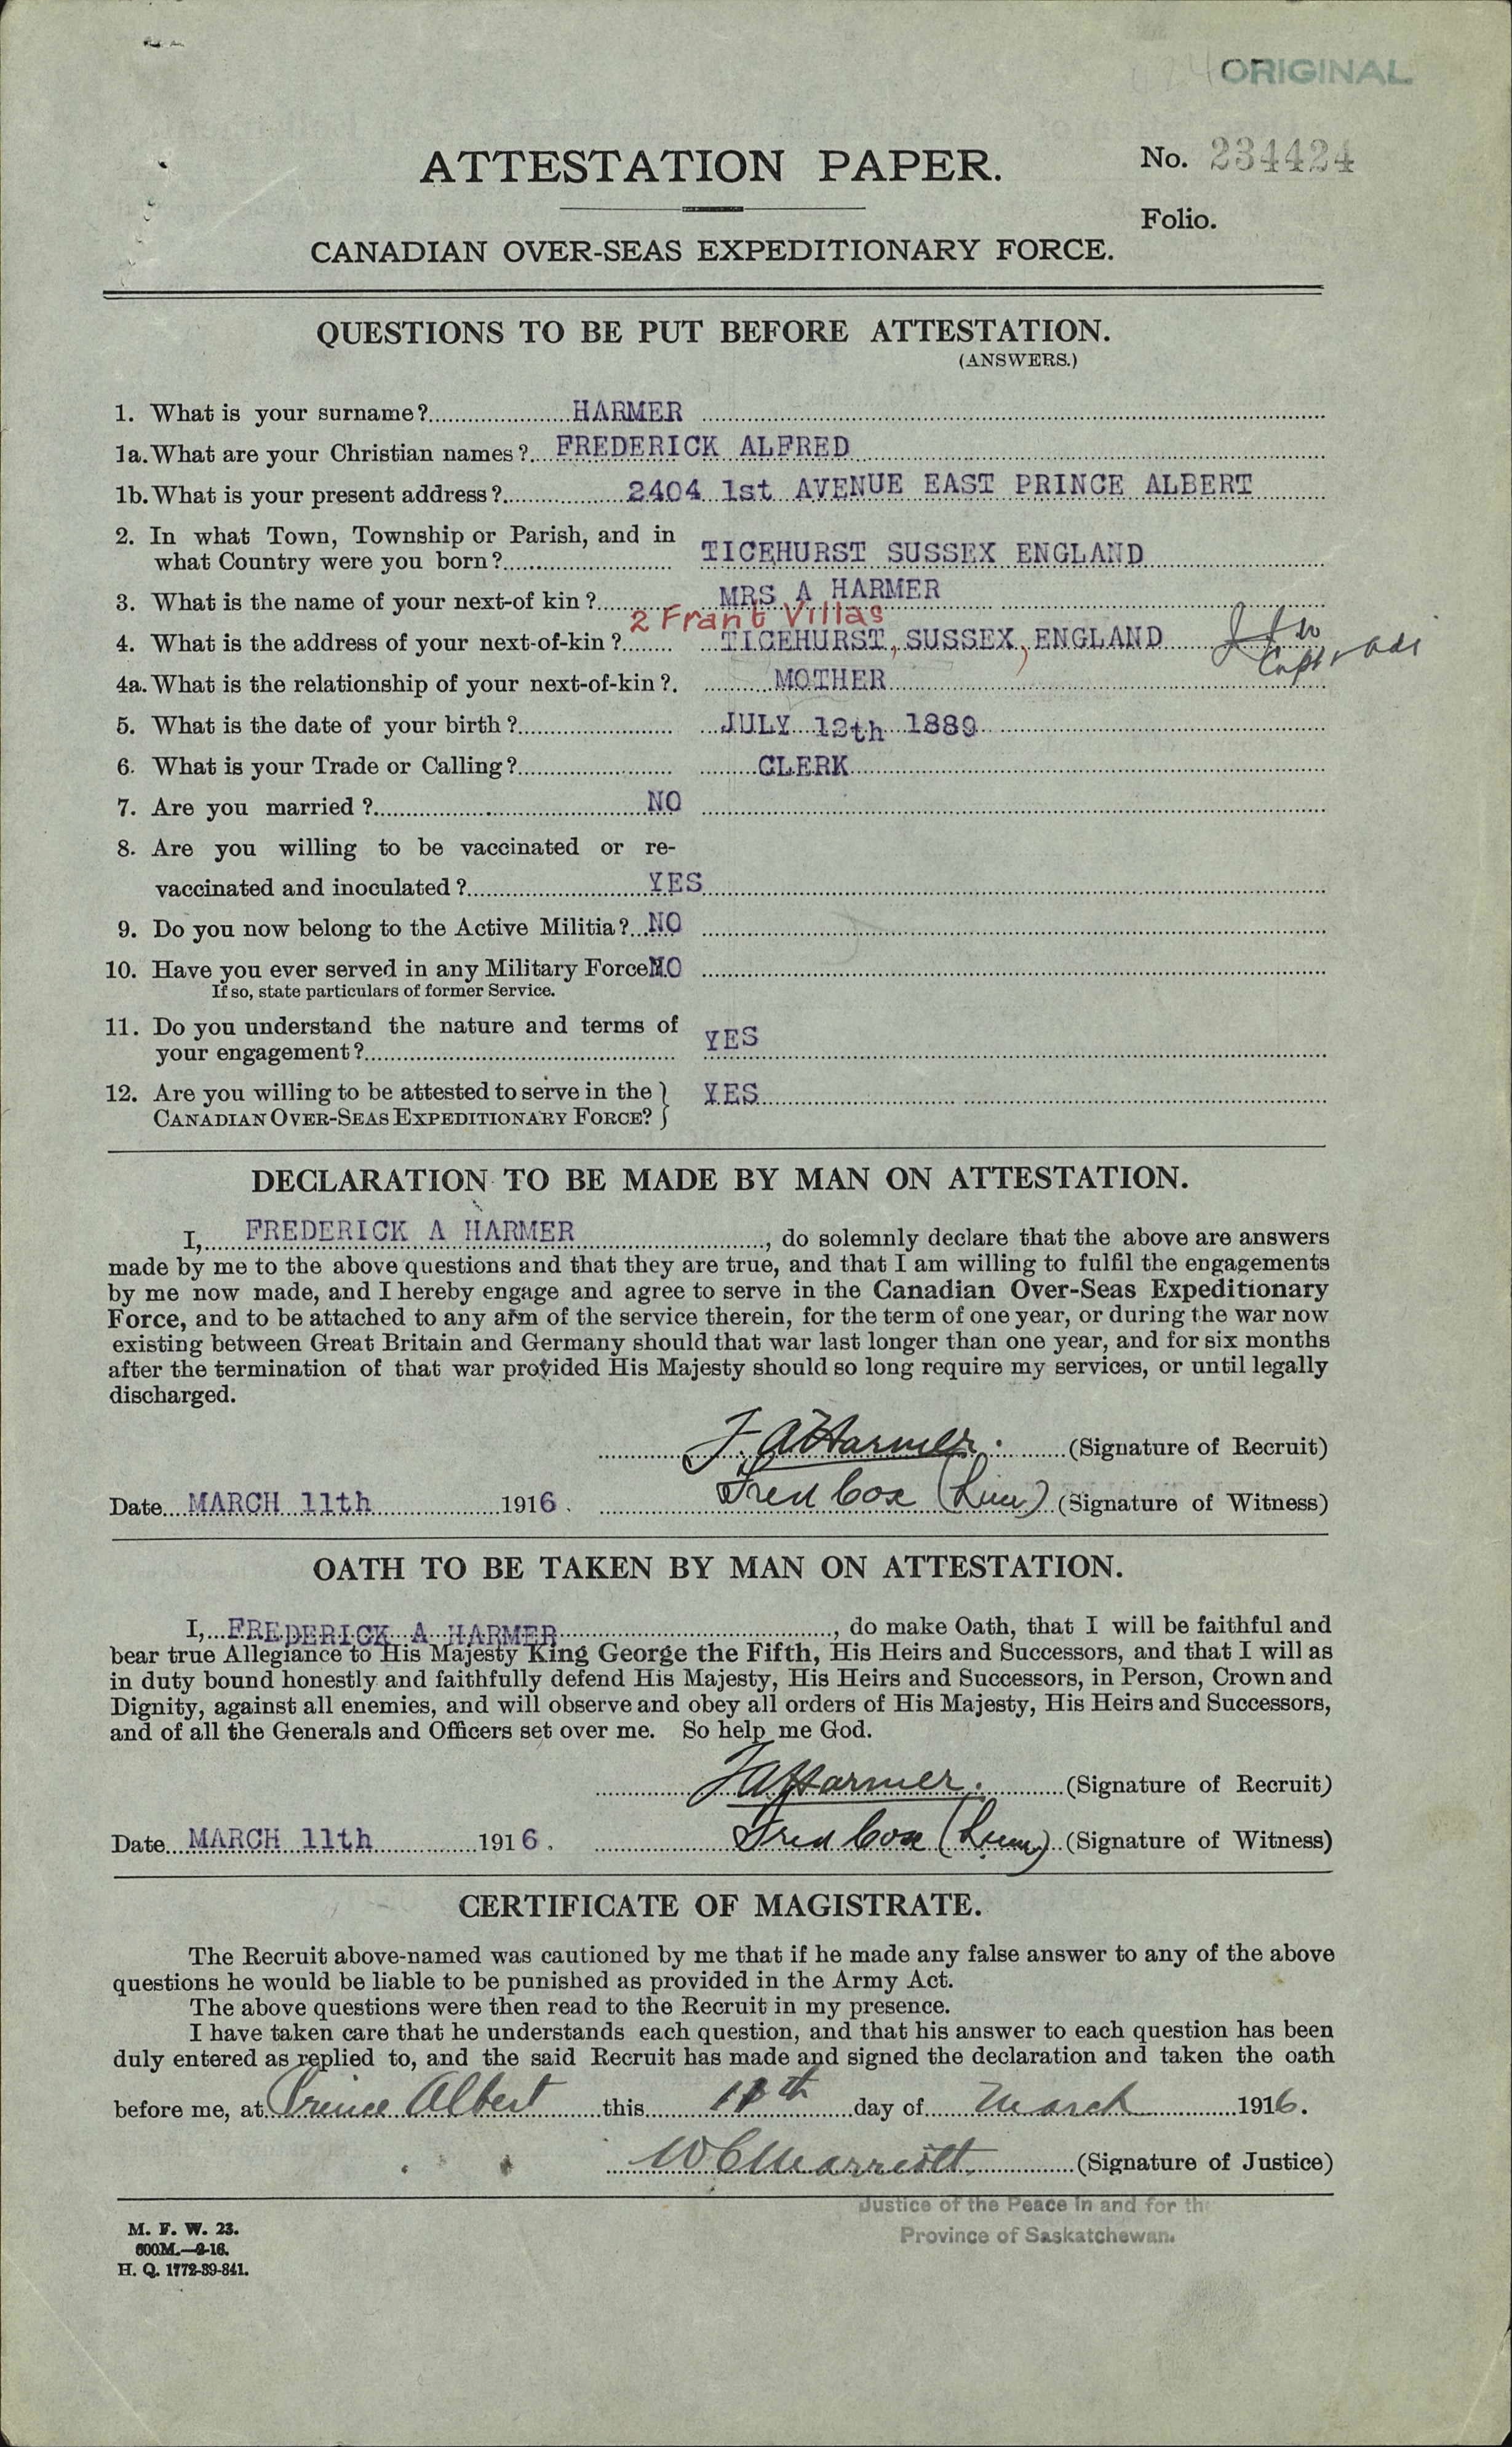 ORIGINAL
ATTESTATION PAPER.
No. 234424
Folio.
CANADIAN OVER-SEAS EXPEDITIONARY FORCE.
QUESTIONS TO BE PUT BEFORE ATTESTATION.
(ANSWERS.)
1. What is your surname? HARMER
1a. What are your Christian names? FREDERICK ALFRED
1b. What is your present address? 2404 1st AVENUE EAST PRINCE ALBERT
2. In what Town, Township or Parish, and in
what Country were you born? TICEHURST SUSSEX ENGLAND
3. What is the name of your next-of kin? MRS A HARMER
2 Frant Villas
4. What is the address of your next-of-kin? TICEHURST, SUSSEX, ENGLAND
Capt
4a. What is the relationship of your next-of-kin? MOTHER
5. What is the date of your birth? JULY 12th 1889
6. What is your Trade or Calling? CLERK
7. Are you married? NO
8. Are you willing to be vaccinated or re-
vaccinated and inoculated? YES
9. Do you now belong to the Active Militia? NO
10. Have you ever served in any Military Force NO
If so, state particulars of former Service.
11. Do you understand the nature and terms of
your engagement? YES
12. Are you willing to be attested to serve in the }
CANADIAN OVER-SEAS EXPEDITIONARY FORCE? } YES
DECLARATION TO BE MADE BY MAN ON ATTESTATION.
I, FREDERICK A HARMER, do solemnly declare that the above are answers
made by me to the above questions and that they are true, and that I am willing to fulfil the engagements
by me now made, and I hereby engage and agree to serve in the Canadian Over-Seas Expeditionary
Force, and to be attached to any arm of the service therein, for the term of one year, or during the war now
existing between Great Britain and Germany should that war last longer than one year, and for six months
after the termination of that war provided His Majesty should so long require my services, or until legally
discharged.
F. A Harmer. (Signature of Recruit)
Date MARCH 11th 1916. Fred Cox (Lieu) (Signature of Witness)
OATH TO BE TAKEN BY MAN ON ATTESTATION.
I, FREDERICK A HARMER, do make Oath, that I will be faithful and
bear true Allegiance to His Majesty King George the Fifth, His Heirs and Successors, and that I will as
in duty bound honestly and faithfully defend His Majesty, His Heirs and Successors, in Person, Crown and
Dignity, against all enemies, and will observe and obey all orders of His Majesty, His Heirs and Successors,
and of all the Generals and Officers set over me. So help me God.
F A Harmer. (Signature of Recruit)
Date MARCH 11th 1916. Fred Cox (Lieu) (Signature of Witness)
CERTIFICATE OF MAGISTRATE.
The Recruit above-named was cautioned by me that if he made any false answer to any of the above
questions he would be liable to be punished as provided in the Army Act.
The above questions were then read to the Recruit in my presence.
I have taken care that he understands each question, and that his answer to each question has been
duly entered as replied to, and the said Recruit has made and signed the declaration and taken the oath
before me, at Prince Albert this 11th day of March 1916.
W C Marriott (Signature of Justice)
Justice of the Peace in and for the
Province of Saskatchewan.
M. F. W. 23.
600M.—2-16.
H. Q. 1772-39-841.